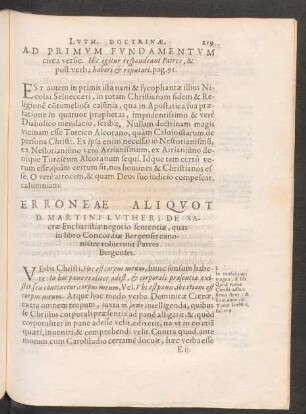 LVTH. DOCTRINÆ. 219
AD PRIMVM FVNDAMENTVM
circa versic. Hic igitur respondeant Patres, &
post verb. haberi & reputari. pag. 91.
EST autem in primis ista nani & sycophantæ illius Ni-
colai Selnecceri, in notam Christianam fidem & Re-
ligionē cōtumeliosa calūnia, qua in Apostatica sua præ-
fatione in quatuor prophetas, impudentissimo & verè
Diabolico mendacio, scribit, Nullam doctrinam magis
vicinam esse Turcico Alcorano, quàm Caluinistarum de
persona Christi. Ex ipsa enim necessariò Nestorianismū,
ex Nestorianismo verò Arrianismum, ex Arrianismo deni-
que Turcismum Alcoranum sequi. Idque tam certò ve-
rum esse, quàm certum sit, nos homines & Christianos es-
se. O verè atrocem, & quam Deus suo iudicio compescat,
calumniam!
ERRONEAE ALIQVOT
D. MARTINI LVTHERI DE SA-
cræ Eucharistiæ negotio sententiæ, quas
in libro Concordiæ Bergensis cano-
nisare voluerunt Patres
Bergenses.
VErba Christi, Hoc est corpus meum, hunc sensum habe-
re: In hoc pane realiter adest, & corporali præsentia exi-
stit, seu continetur corpus meum, Vel, Vbi est panis, ibi etiam est
corpus meum. Atque hoc modo verba Dominicæ Cœnæ,
extra omnem tropum, iuxta
quibus se
Christus corporali præsentia ad pane adesse velit, credenti-
bus
quærti, inueniri, & comprehendi velit. Contra quod, ante
motum cum Carolstadio certamē docuit, hæc verba esse
E ij.